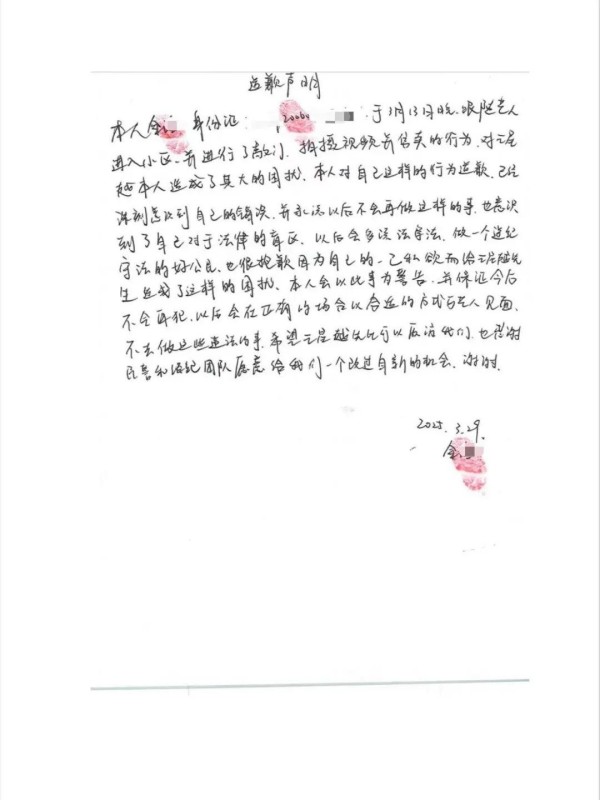 道歉声明
本人金 身份证 : 200604 于3月13日晚,跟随艺人
进入小区,并进行了敲门、拍摄视频并售卖的行为,对
越本人造成了莫大的困扰。本人对自己这样的行为道歉,已经
深刻意识到自己的错误,并承诺以后不会再做这样的事,也意识
到了自己对于法律的盲区,以后会多读法守法,做一个遵纪
守法的好公民,也很抱歉因为自己的一己私欲而给
生造成了这样的困扰,本人会以此事为警告,并保证今后
不会再犯,以后会在正确的场合以合适的方式与艺人见面,
不去做这些违法的事,希望 越先生可以原谅我们,也感谢
民警和经纪团队愿意给我们一个改过自新的机会,谢谢.
2025.3.29.
金